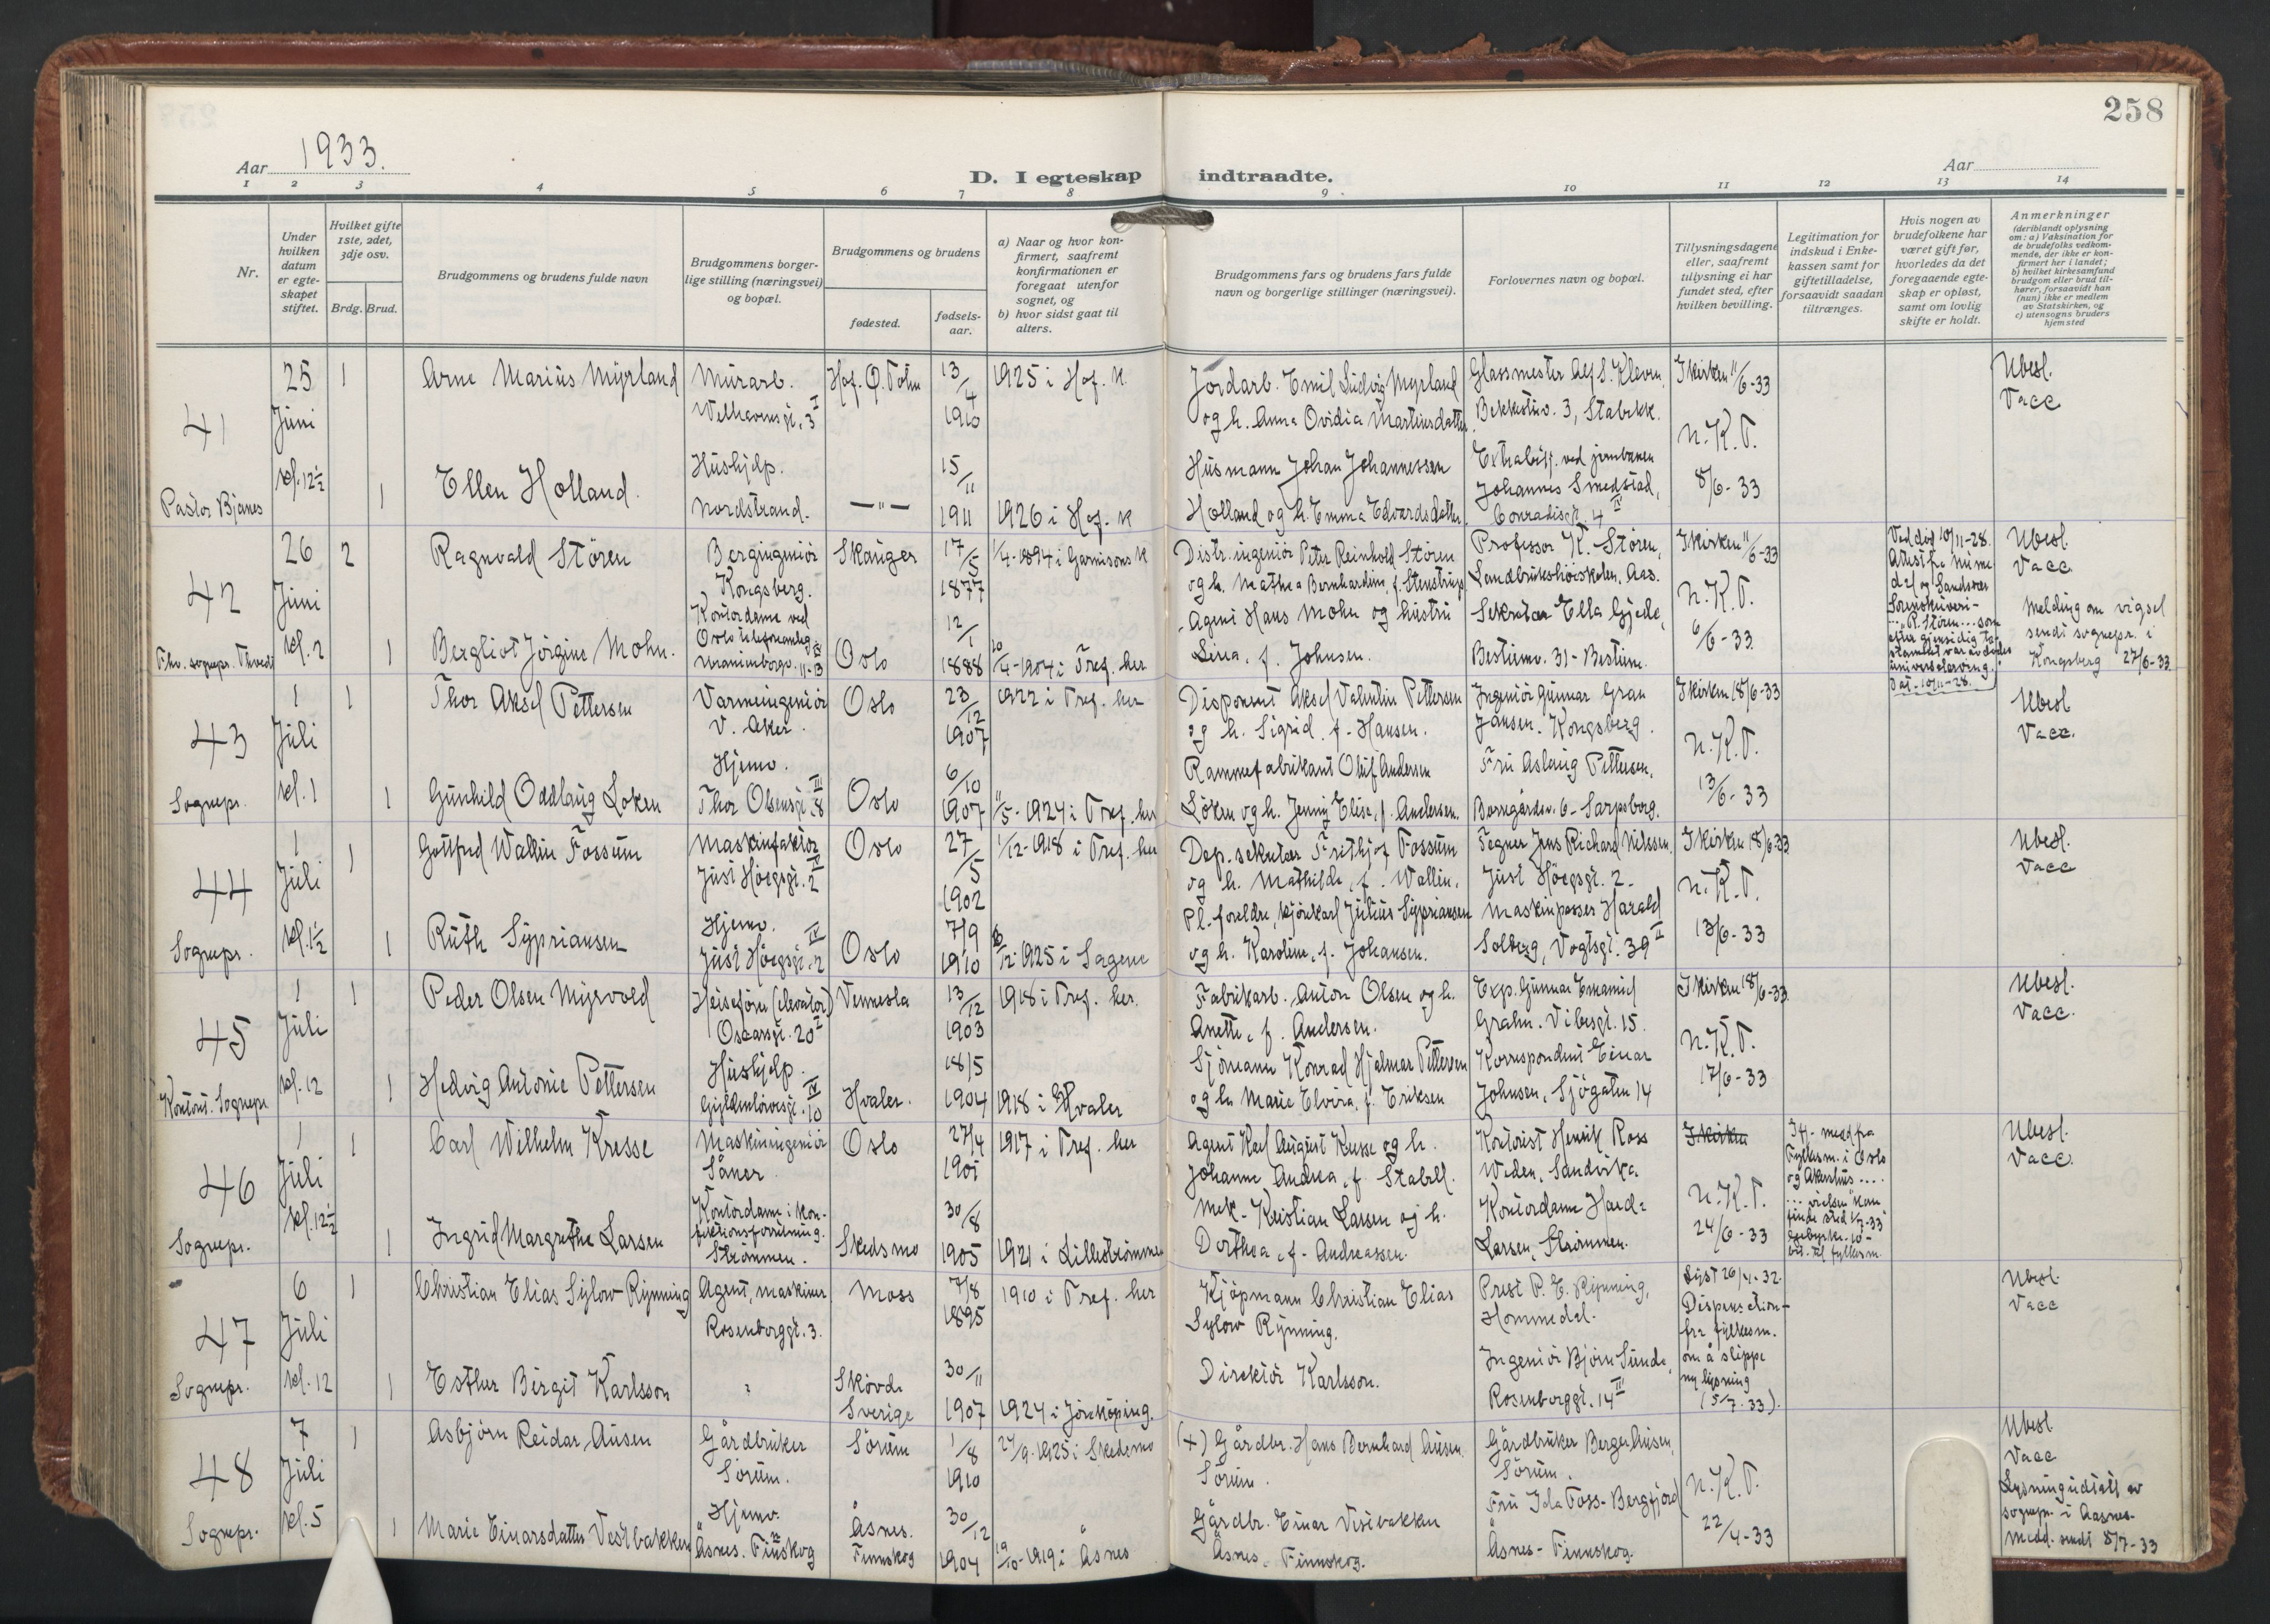 258
Aar 1933.
Aar
D. I egteskap indtraadte.
1 2 3 4 5 6 7 8 9 10 11 12 13 14
Nr.
Under hvilken datum er egteskapet stiftet.
Hvilket gifte 1ste, 2det, 3dje osv.
Brdg. Brud.
Brudgommens og brudens fulde navn
Brudgommens borgerlige stilling (næringsvei) og bopæl.
Brudgommens og brudens
fødested.
fødselsaar.
a) Naar og hvor konfirmert, saafremt konfirmationen er foregaat utenfor sognet, og
b) hvor sidst gaat til alters.
Brudgommens fars og brudens fars fulde navn og borgerlige stillinger (næringsvei).
Forlovernes navn og bopæl.
Tillysningsdagene eller, saafremt tillysning ei har fundet sted, efter hvilken bevilling.
Legitimation for indskud i Enkekassen samt for giftetilladelse, forsaavidt saadan tiltrænges.
Hvis nogen av brudefolkene har været gift før, hvorledes da det foregaaende egteskap er opløst, samt om lovlig skifte er holdt.
Anmerkninger (deriblandt oplysning om: a) Vaksination for de brudefolks vedkommende, der ikke er konfirmert her i landet; b) hvilket kirkesamfund brudgom eller brud tilhører, forsaavidt han (hun) ikke er medlem av Statskirken, og c) utensogns bruders hjemsted
41
25 Juni kl. 12½
Pastor Bjanes
1
Arne Marius Myrland
Murarb.
Welhavensgt. 3 I
13/4 1910
1925 i Hof. K.
Jordarb. Emil Ludvig Myrland
og h. Anna Ovidia Martinsdatter
Glassmester Alf S. Kleven,
Bekkestuv. 3, Stabekk.
I kirken 11/6-33
n.K.T.
8/6-33
Ubesl.
Vacc
1
Ellen Holland.
Hushjelp.
Nordstrand.
—"—
15/11 1911
1926 i Hof. K
Husmann Johan Johannessen
Holland og h. Emma Edvardsdatter
Johannes Smedstad,
Conradisgt. 4 IV
42
26 Juni kl. 2
2
Ragnvald Stören
Bergingeniör
Kongsberg.
Skauger
17/5 1877
1/4-1894 i Garnisons K
Distr.ingeniör Peter Reinhold Stören
og h. Mathea Bernhardine, f. Stenstrup
Professor K. Stören,
Landbrukshöiskolen, Aas.
I kirken 11/6-33
n.K.T.
6/6-33
Ved död 10/11-28.
Attest fra Nume
dal og Sandsvær
Sorenskriveri-
Dat. 10/11-28.
Ubesl.
Vacc
Melding om vigsel
sendt sognepr. i
Kongsberg 27/6-33
1
Bergliot Jörgine Mohn.
Kontordame ved
Oslo telefonanlegg
Uranienborgv. 11-13
Oslo
12/1 1888
10/4-1904 i Tref. her
Agent Hans Mohn og hustru
Lina, f. Johnsen.
Sekretær Ella Gjede,
Bestumv. 31 - Bestum.
43
1 Juli kl. 1
Sognepr.
1
Thor Aksel Pettersen
Varmeingeniör
V. Aker.
Oslo
23/12 1907
1922 i Tref. her
Disponent Aksel Valentin Pettersen
og h. Sigrid, f. Hansen.
Ingeniör Gunnar Gran
Jansen. Kongsberg.
I kirken 18/6-33
n.K.T.
13/6-33
Ubesl
Vacc.
1
Gunhild Oddlaug Löken
Hjemv.
Thor Olsensgt. 8 III
Oslo
6/10 1907
11/5-1924 i Tref. her
Rammefabrikant Oluf Andersen
Löken og h. Jenny Elise, f. Andersen.
Fru Aslaug Pettersen,
Borregårdsv. 6 - Sarpsborg.
44
1 Juli kl. 1½
Sognepr.
1
Gottfred Wallin Fossum
Maskinfaktor
Just Höegsgt. 2 IV
Oslo
27/5 1902
1/12-1918 i Tref. her
Dep. sekretær Frithjof Fossum
og h. Mathilde, f. Wallin.
Tegner Jens Richard Nilssen,
Just Höegsgt. 2.
I kirken 18/6-33
n.K.T.
13/6-33
Ubesl.
Vacc
1
Ruth Sypriansen
Hjemv.
Just Höegsgt. 2 IV
Oslo
7/9 1910
/12-1925 i Sagene
Pl. foreldre, kjörekarl Julius Sypriansen
og h. Karoline, f. Johansen.
Maskinpasser Harald
Solberg, Vogtsgt. 39 II
45
1 Juli kl. 12
Konst. Sognepr
1
Peder Olsen Myrvold
Heisefører (elevator)
Oscarsgt. 20 I
Vennesla
13/12 1903
1918 i Tref. her.
Fabrikarb. Anton Olsen og h.
Anette, f. Andersen.
Exp. Gunnar Emanuel
Grahn. Vibesgt. 15.
I kirken 18/6-33
n.K.T.
17/6-33
Ubesl.
Vacc.
1
Hedvig Antonie Pettersen
Hushjelp.
Gyldenlövesgt. 10 IV
Hvaler.
18/5 1904
1918 i Hvaler
Sjömann Konrad Hjalmar Pettersen
og h. Marie Elvira, f. Eriksen
Korrespondent Einar
Johnsen, Sjögaten 14
46
1 Juli kl. 12½
Sognepr.
1
Carl Wilhelm Kresse
Maskiningeniör
Såner
Oslo
27/4 1901
1917 i Tref. her
Agent Karl August Kresse og h.
Johanne Andrea, f. Stabell.
Kontorist Henrik Ross
Weden, Sandvika
I kirken
n.K.T.
24/6-33
Ifl. medd. fra
Fylkesm. i Oslo
og Akershus ....
... vielsen "kan
finde sted 1/7-33"
Gebyrkr. 10-
bet. til fylkesm.
Ubesl.
Vacc.
1
Ingrid Margrethe Larsen
Kontordame i kon-
fektionsforretning.
Strömmen.
Skedsmo
30/8 1905
1921 i Lilleströmmen
Mek. Kristian Larsen og h.
Dorthea, f. Andreassen.
Kontordame
Larsen, Strömmen.
47
6 Juli kl. 12
Sognepr.
1
Christian Elias Sylow Rynning
Agent, maskiner
Rosenborggt. 3.
Moss
7/8 1895
1910 i Tref. her
Kjöpmann Christian Elias
Sylow Rynning.
Prest P. E. Rynning,
Hommedal.
Lyst 26/4-32.
Dispensation
fra fylkesm.
om å slippe
ny lysning
(5/7-33).
Ubesl.
Vacc
1
Esther Birgit Karlsson
?
Skövde
Sverige
30/11 1907
1924 i Jönköping.
Direktör Karlsson.
Ingeniör Björn Sunde,
Rosenborggt. 14 II
48
7 Juli kl. 5
Sognepr.
1
Asbjörn Reidar Ausen
Gårdbruker
Sörum.
Sörum
1/8 1910
27/9-1925 i Skedsmo
(+) Gårdbr. Hans Bernhard Ausen
Sörum.
Gårdbruker Berger Ausen,
Sörum.
n.K.T.
22/4-33
Ubesl
Vacc
Lysning utstedt av
sognepr. i Aasnes.
Medd. sendt 8/7-33
1
Marie Einarsdatter Vestbakken
Hjemv.
Åsnes. Finnskog
Åsnes.
Finnskog
30/12 1904
19/10-1919 i Åsnes
Gårdbr. Einar Vestbakken
Åsnes, Finnskog.
Fru Ida Foss-Bergfjord
Åsnes - Finnskog.